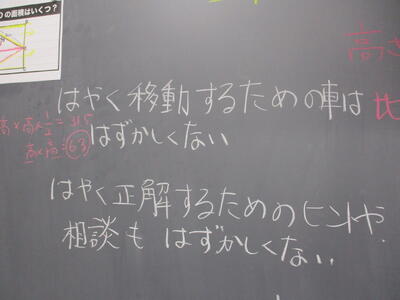 の面積はいくつ?
高さ
はやく移動するための車は
比
高×高×1/2=31.5
はずかしくない
高×高=63
はやく正解するためのヒントや
相談も はずかしくない